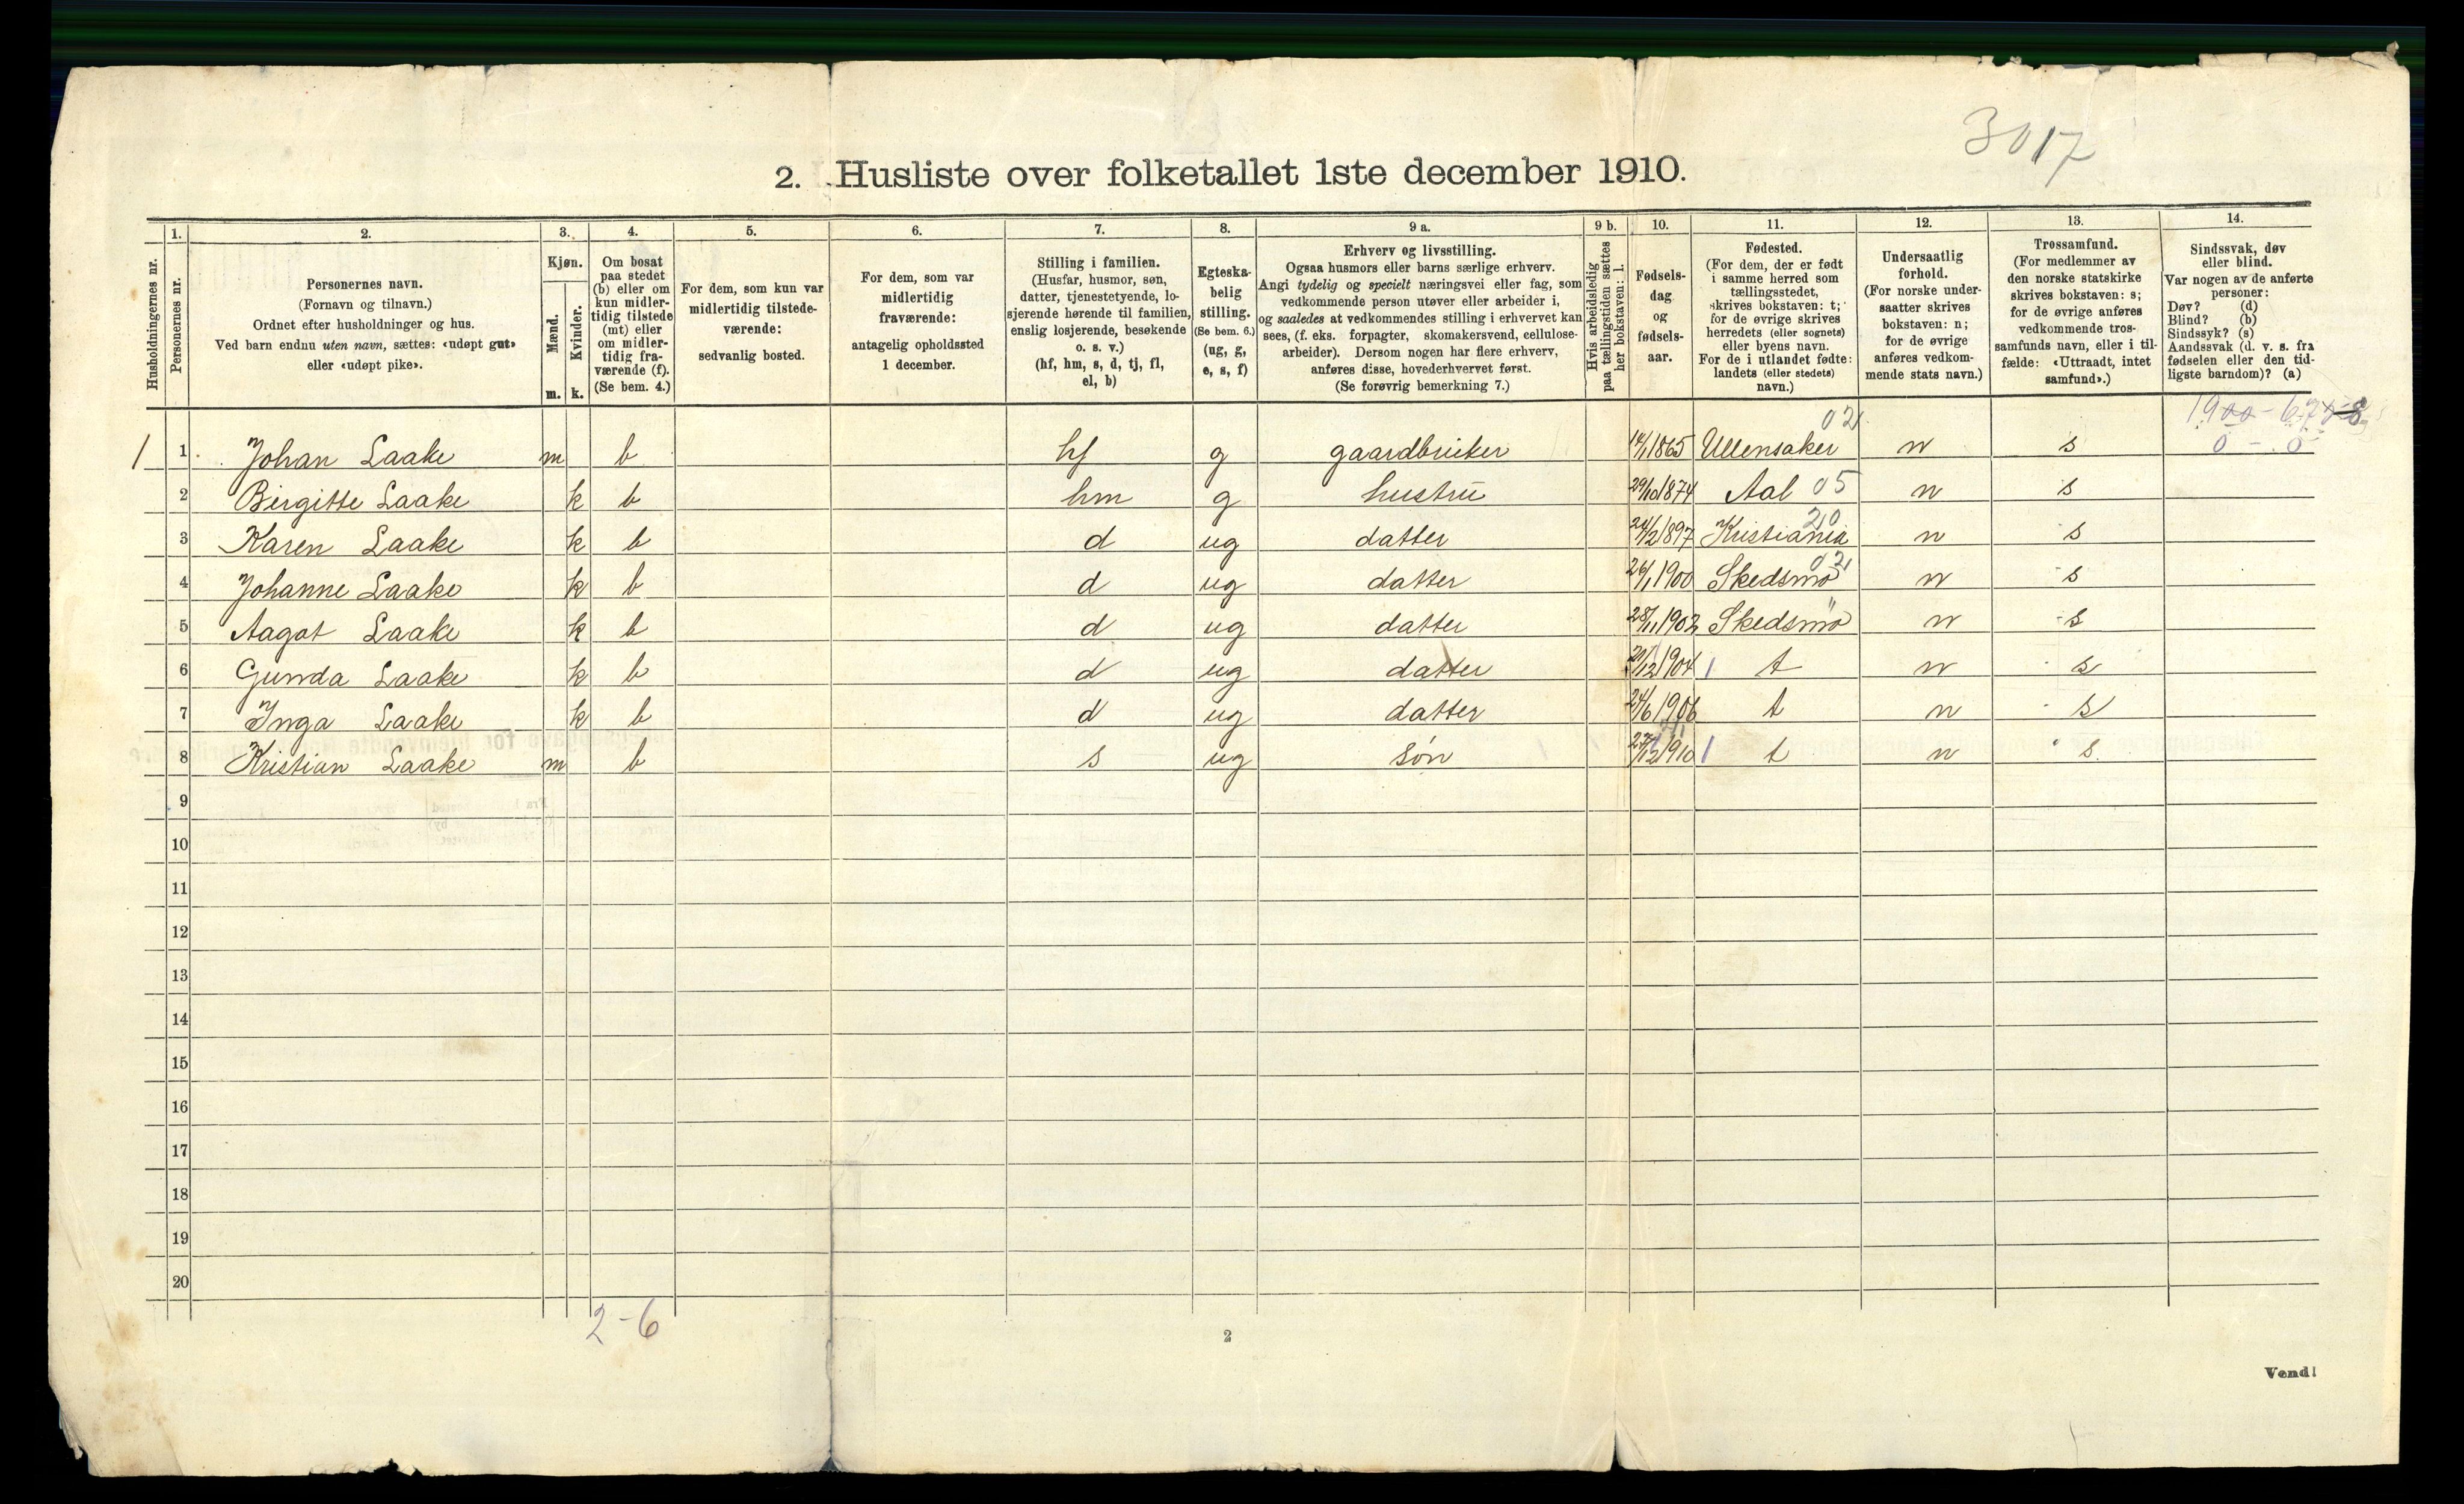 3017
2. Husliste over folketallet 1ste december 1910.
1. 2. 3. 4. 5. 6. 7. 8. 9 a. 9 b. 10. 11. 12. 13. 14.
Husholdningernes nr.
Personernes nr.
Personernes navn.
(Fornavn og tilnavn.)
Ordnet efter husholdninger og hus.
Ved barn endnu uten navn, sættes: «udøpt gut»
eller «udøpt pike».
Kjøn.
Mænd.
Kvinder.
m. k.
Om bosat
paa stedet
(b) eller om
kun midler-
tidig tilstede
(mt) eller
om midler-
tidig fra-
værende (f).
(Se bem. 4.)
For dem, som kun var
midlertidig tilstede-
værende:
sedvanlig bosted.
For dem, som var
midlertidig
fraværende:
antagelig opholdssted
1 december.
Stilling i familien.
(Husfar, husmor, søn,
datter, tjenestetyende, lo-
sjerende hørende til familien,
enslig losjerende, besøkende
o. s. v.)
(hf, hm, s, d, tj, fl,
el, b)
Egteska-
belig
stilling.
(Se bem. 6.)
(ug, g,
e, s, f)
Erhverv og livsstilling.
Ogsaa husmors eller barns særlige erhverv.
Angi tydelig og specielt næringsvei eller fag, som
vedkommende person utøver eller arbeider i,
og saaledes at vedkommendes stilling i erhvervet kan
sees, (f. eks. forpagter, skomakersvend, cellulose-
arbeider). Dersom nogen har flere erhverv,
anføres disse, hovederhvervet først.
(Se forøvrig bemerkning 7.)
Hvis arbeidsledig
paa tællingstiden sættes
her bokstaven: l.
Fødsels-
dag
og
fødsels-
aar.
Fødested.
(For dem, der er født
i samme herred som
tællingsstedet,
skrives bokstaven: t;
for de øvrige skrives
herredets (eller sognets)
eller byens navn.
For de i utlandet fødte:
landets (eller stedets)
navn.)
Undersaatlig
forhold.
(For norske under-
saatter skrives
bokstaven: n;
for de øvrige
anføres vedkom-
mende stats navn.)
Trossamfund.
(For medlemmer av
den norske statskirke
skrives bokstaven: s;
for de øvrige anføres
vedkommende tros-
samfunds navn, eller i til-
fælde: «Uttraadt, intet
samfund».)
Sindssvak, døv
eller blind.
Var nogen av de anførte
personer:
Døv? (d)
Blind? (b)
Sindssyk? (s)
Aandssvak (d. v. s. fra
fødselen eller den tid-
ligste barndom)? (a)
02
1 1 Johan Laake m b hf g gaardbruker 14/1 1865 Ullensaker n s 0 - 0
2 Birgitte Laake k b hm g hustru 29/10 1874 Aal 05 n s
20
3 Karen Laake k b d ug datter 24/2 1897 Kristiania n s
02
4 Johanne Laake k b d ug datter 26/1 1900 Skedsmo n s
"
5 Aagot Laake k b d ug datter 28/11 1902 Skedsmo n s
6 Gunda Laake k b d ug datter /12 1904 1 t n s
7 Inga Laake k b d ug datter 24/6 1906 t n s
8 Kristian Laake m b s ug søn 27/12 1910 1 t n s
9
10
11
12
13
14
15
16
17
18
19
20
2-6
2
Vend!